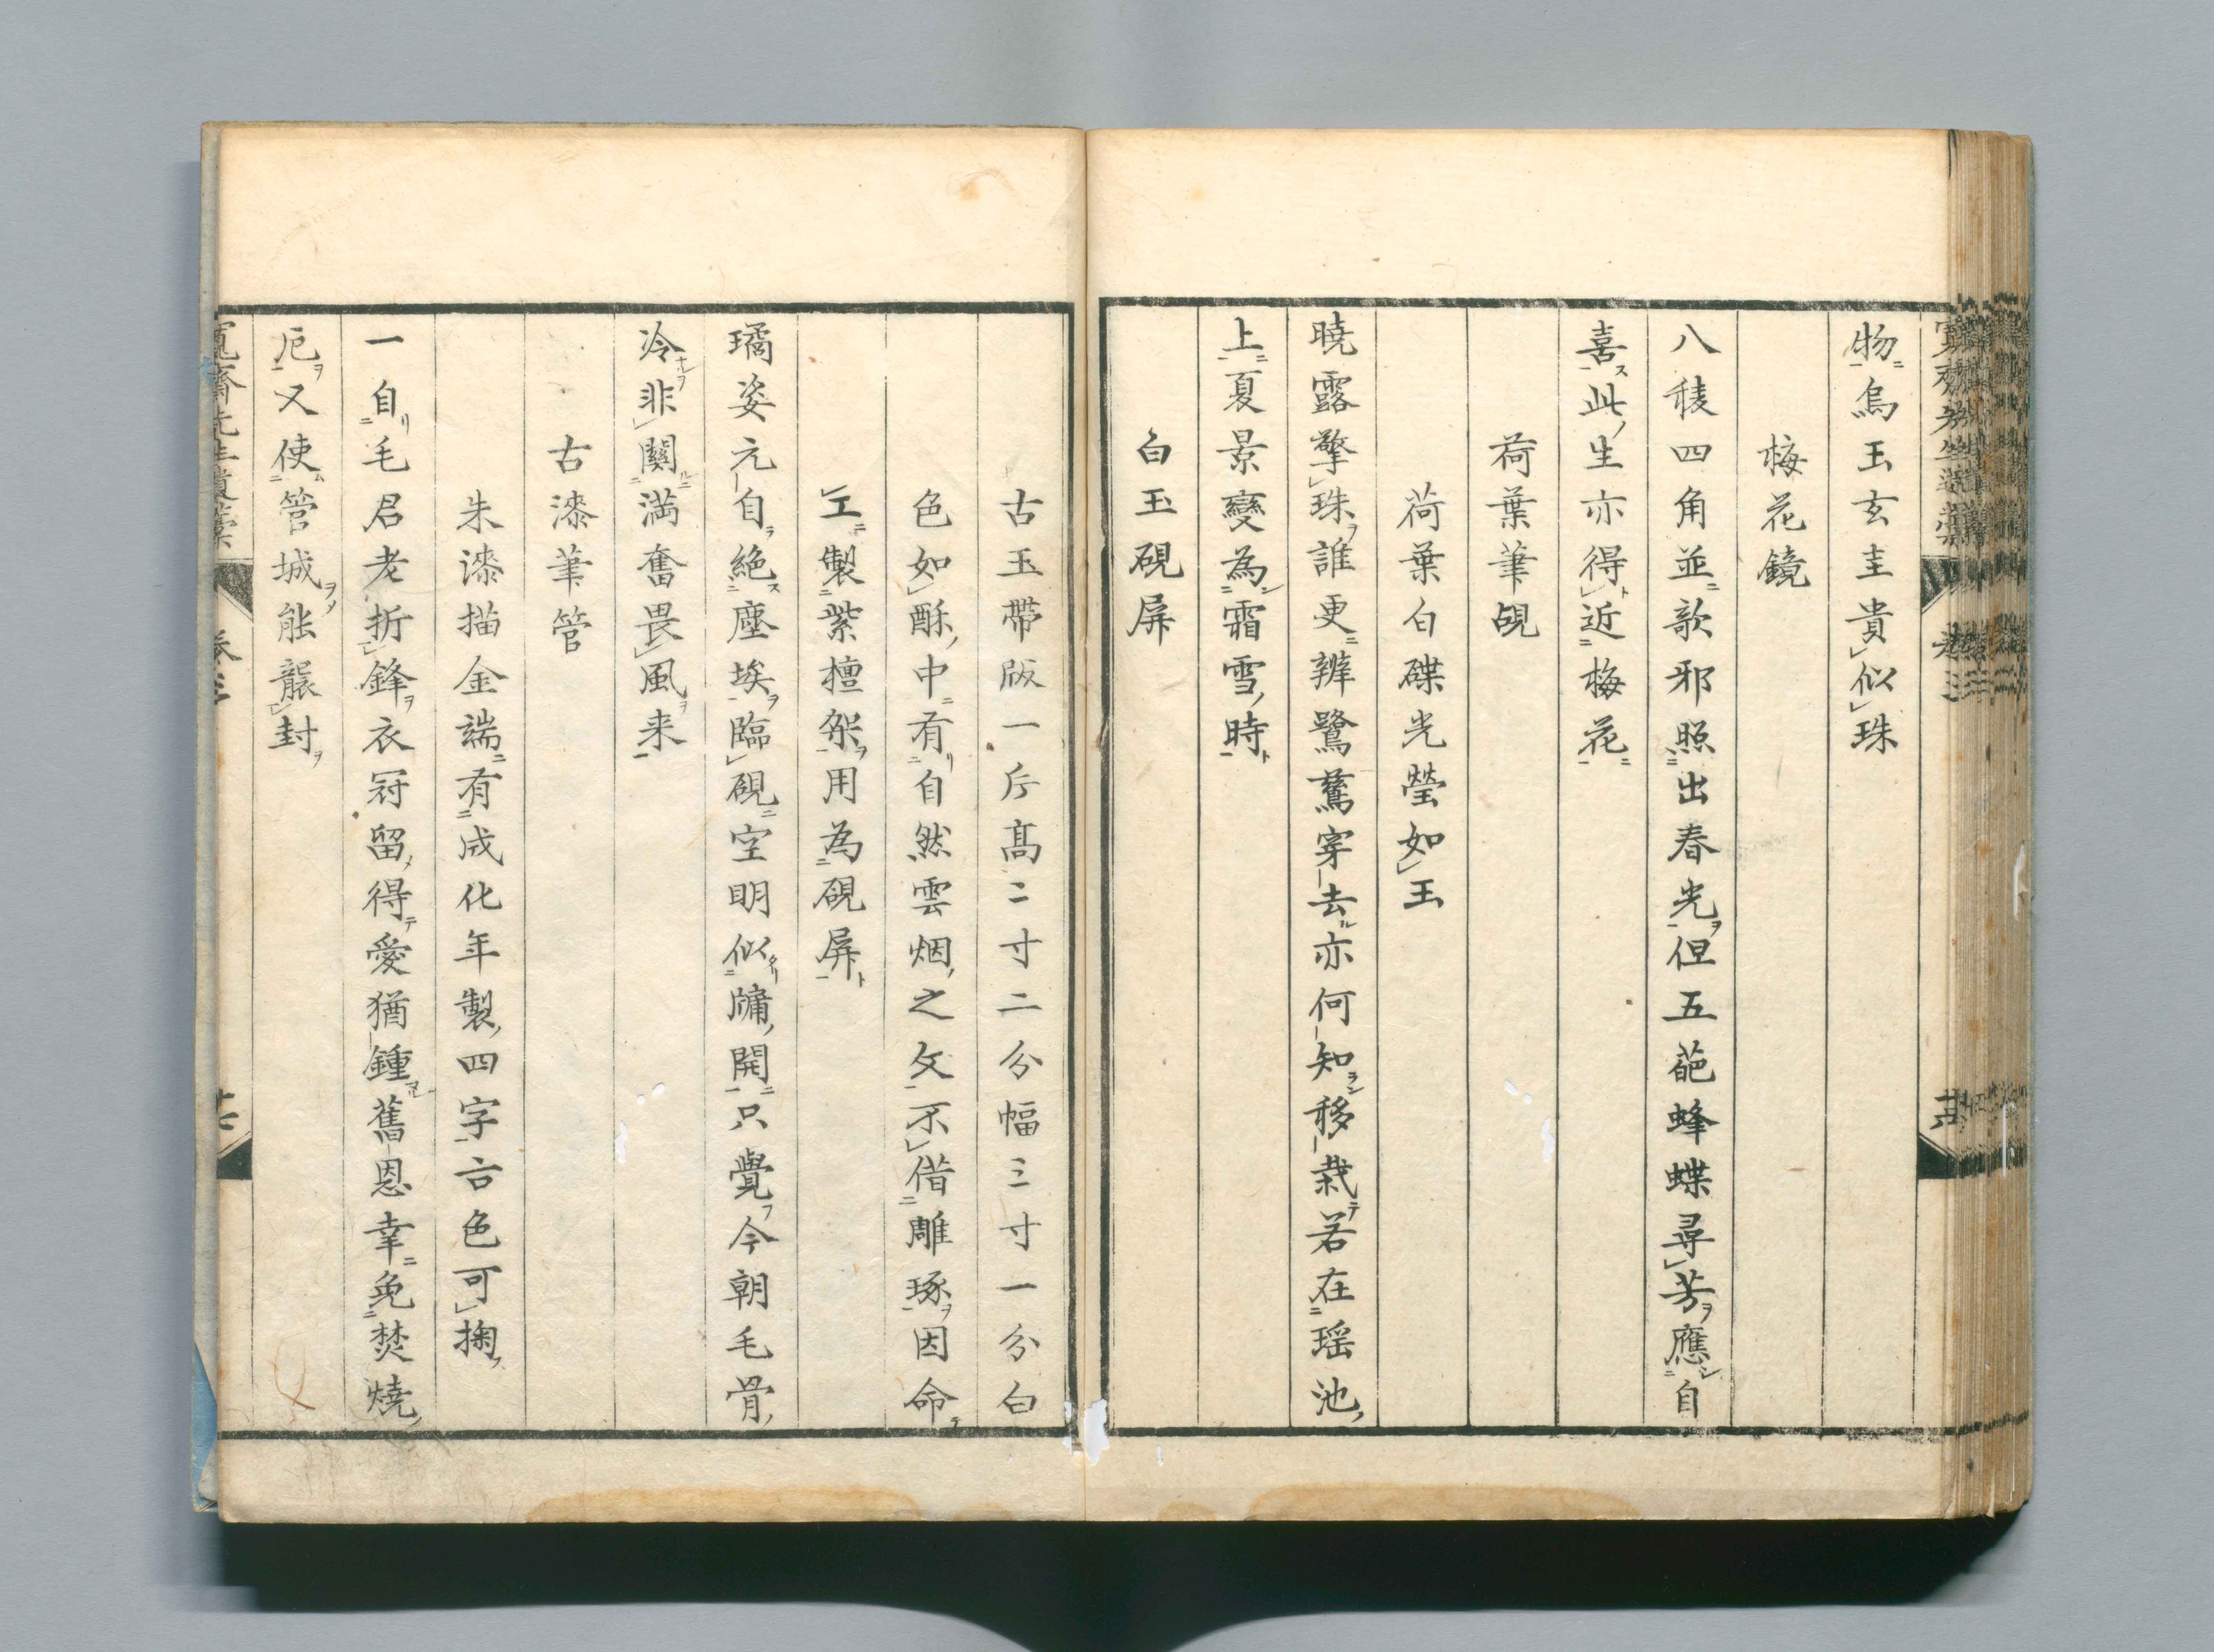 物烏玉玄圭貴似珠
梅花鏡
八稜四角並歌邪照出春光但五葩蜂蝶尋芳應自
喜此生亦得近梅花
荷葉筆硯
荷葉白磁光瑩如玉
曉露擎珠誰更辨鷺鷥穿去亦何知移栽若在瑤池
上夏景變為霜雪時
白玉硯屏
古玉帶版一斤高二寸二分幅三寸一分白
色如酥中有自然雲烟之文不借雕琢因命
工製紫檀架用為硯屏
璚姿元自絕塵埃臨硯空明似牗開只覺今朝毛骨
冷非關滿奮畏風来
古漆筆管
朱漆描金端有成化年製四字古色可掬
一自毛君老折鋒衣冠留得愛猶鍾舊恩幸免焚燒
厄又使管城能襲封
寬齋先生遺稾